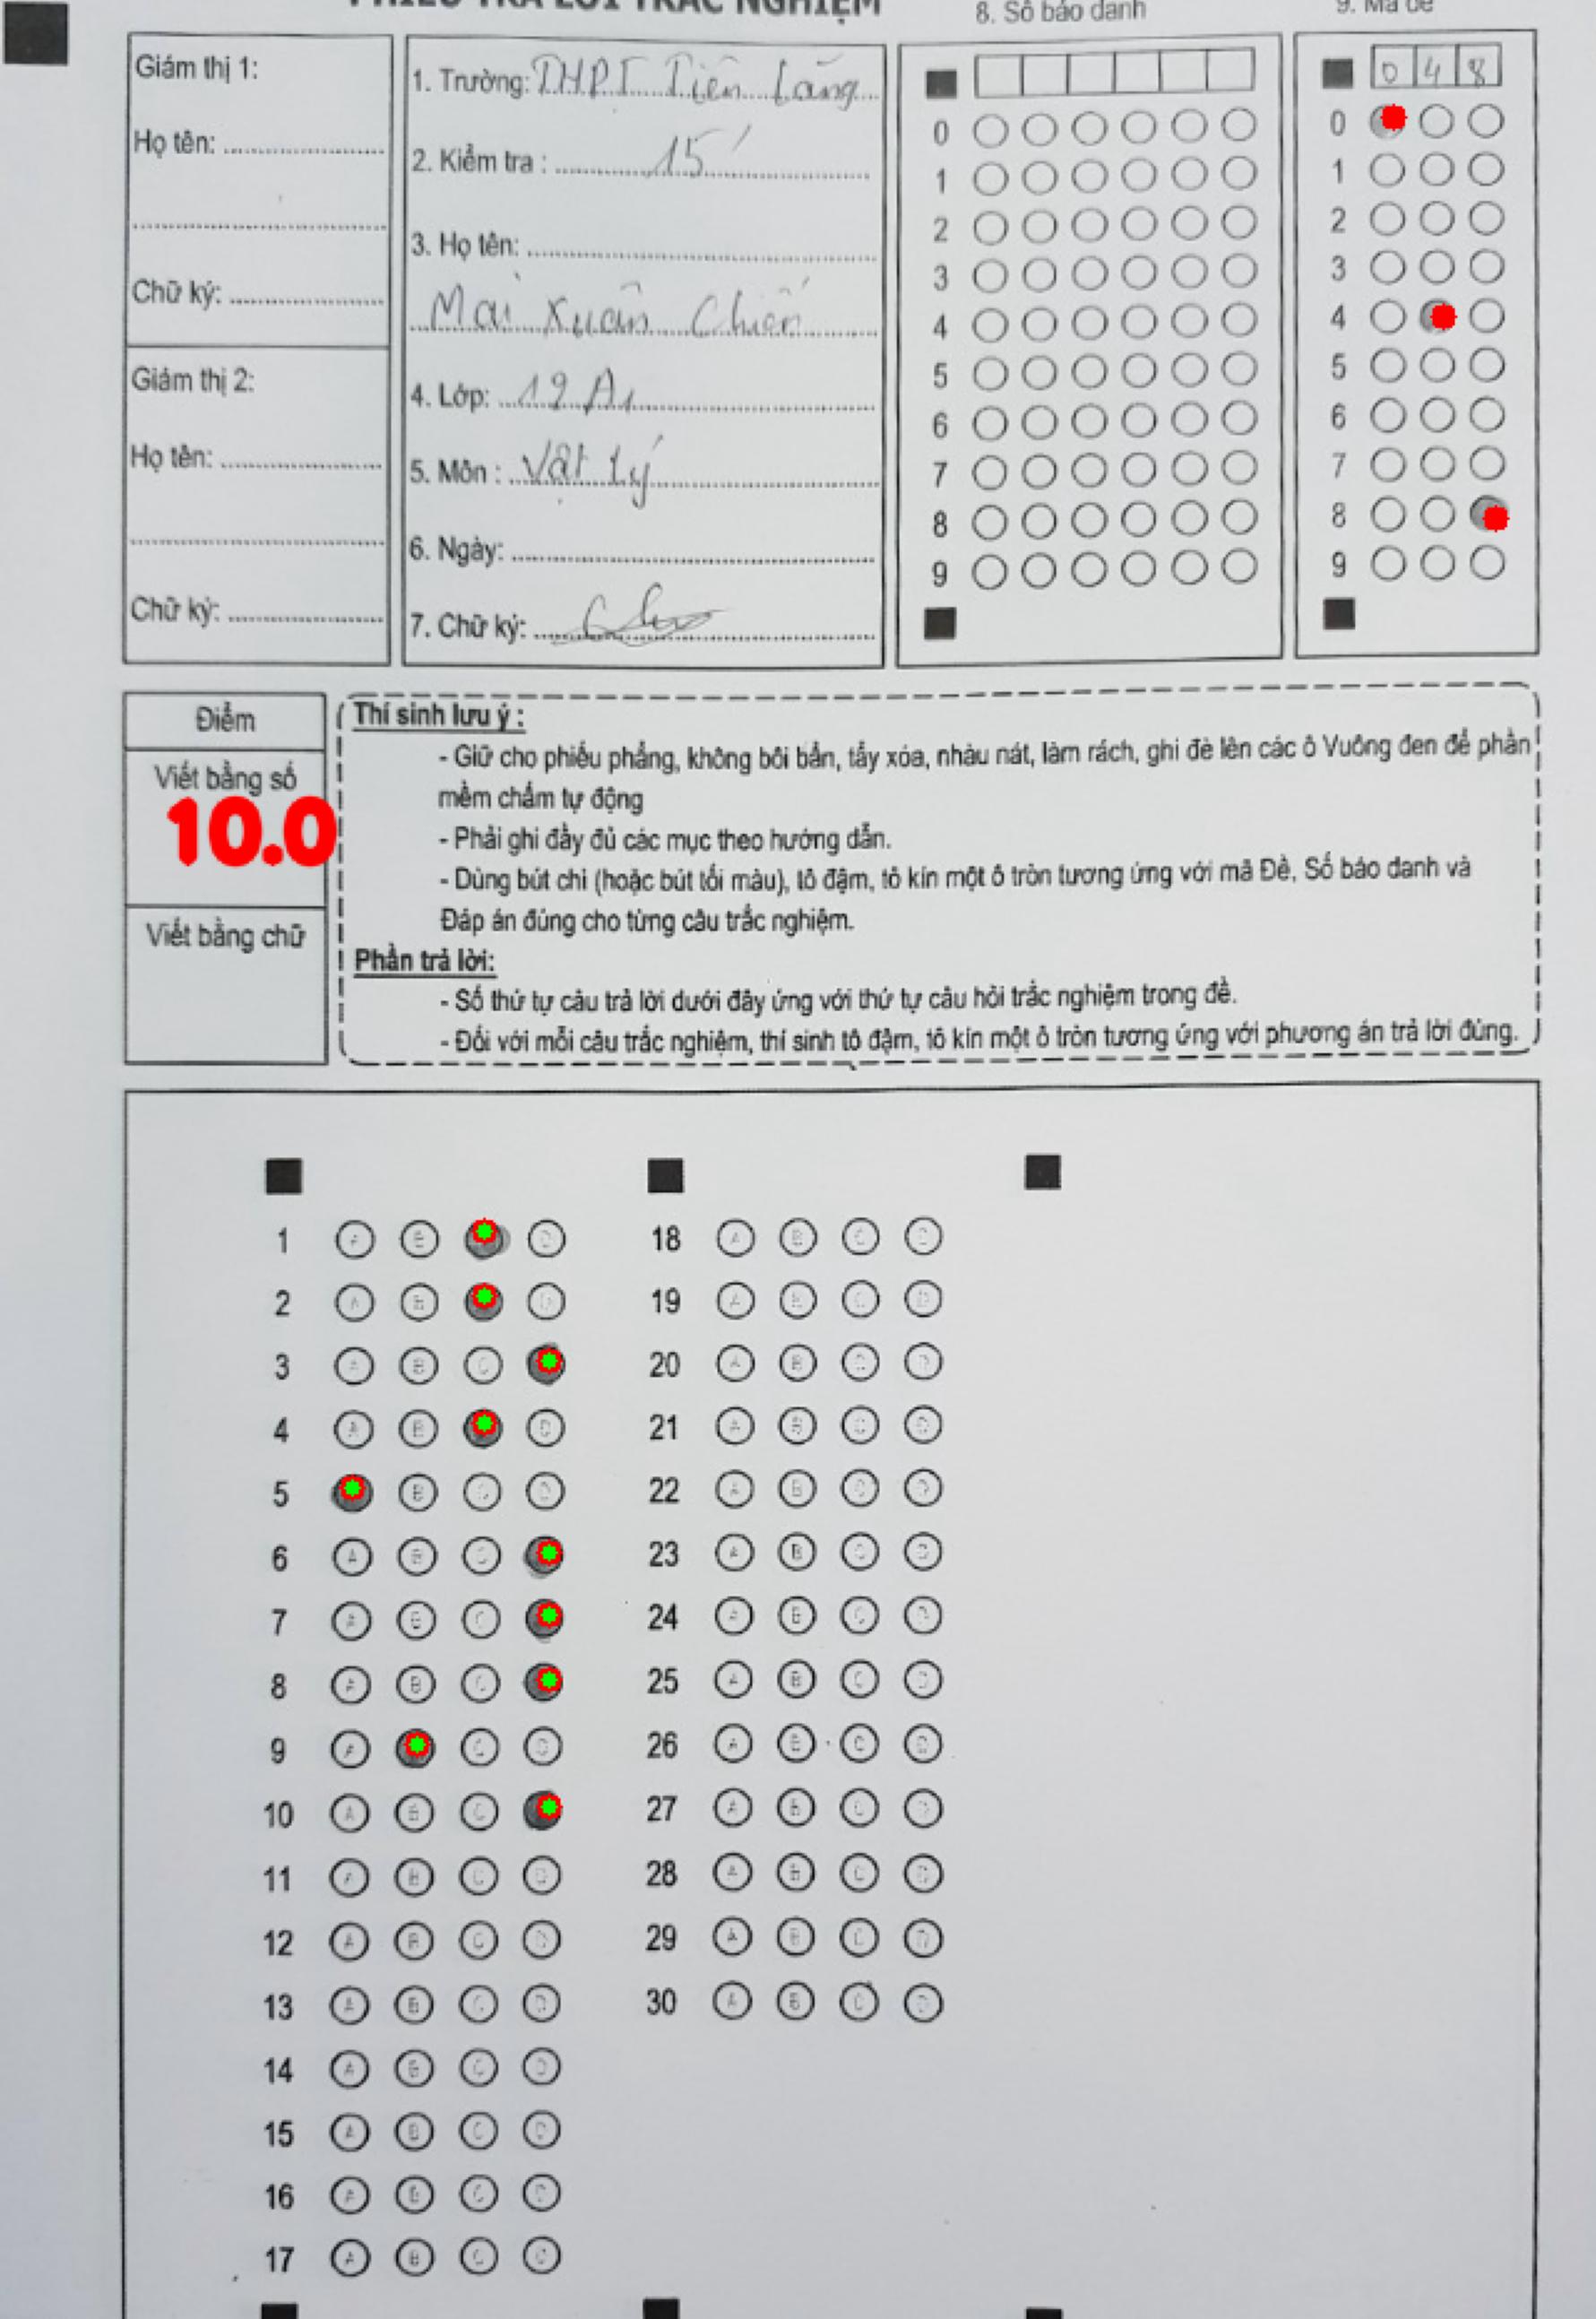 PHIẾU TRẢ LỜI TRẮC NGHIỆM
8. Số báo danh
9. Mã đề
Giám thị 1:
Họ tên:
Chữ ký:
Giám thị 2:
Họ tên:
Chữ ký:
1. Trường: THPT Tiên Lãng
2. Kiểm tra : 15'
3. Họ tên:
Mai Xuân Chiến
4. Lớp: 12 A1
5. Môn : Vật Lý
6. Ngày:
7. Chữ ký:
0
1
2
3
4
5
6
7
8
9
0 4 8
0
1
2
3
4
5
6
7
8
9
Điểm
Viết bằng số
10.0
Viết bằng chữ
Thí sinh lưu ý :
- Giữ cho phiếu phẳng, không bôi bẩn, tẩy xóa, nhàu nát, làm rách, ghi đè lên các ô Vuông đen để phần
mềm chấm tự động
- Phải ghi đầy đủ các mục theo hướng dẫn.
- Dùng bút chì (hoặc bút tối màu), tô đậm, tô kín một ô tròn tương ứng với mã Đề, Số báo danh và
Đáp án đúng cho từng câu trắc nghiệm.
Phần trả lời:
- Số thứ tự câu trả lời dưới đây ứng với thứ tự câu hỏi trắc nghiệm trong đề.
- Đối với mỗi câu trắc nghiệm, thí sinh tô đậm, tô kín một ô tròn tương ứng với phương án trả lời đúng.
1
2
3
4
5
6
7
8
9
10
11
12
13
14
15
16
17
18
19
20
21
22
23
24
25
26
27
28
29
30